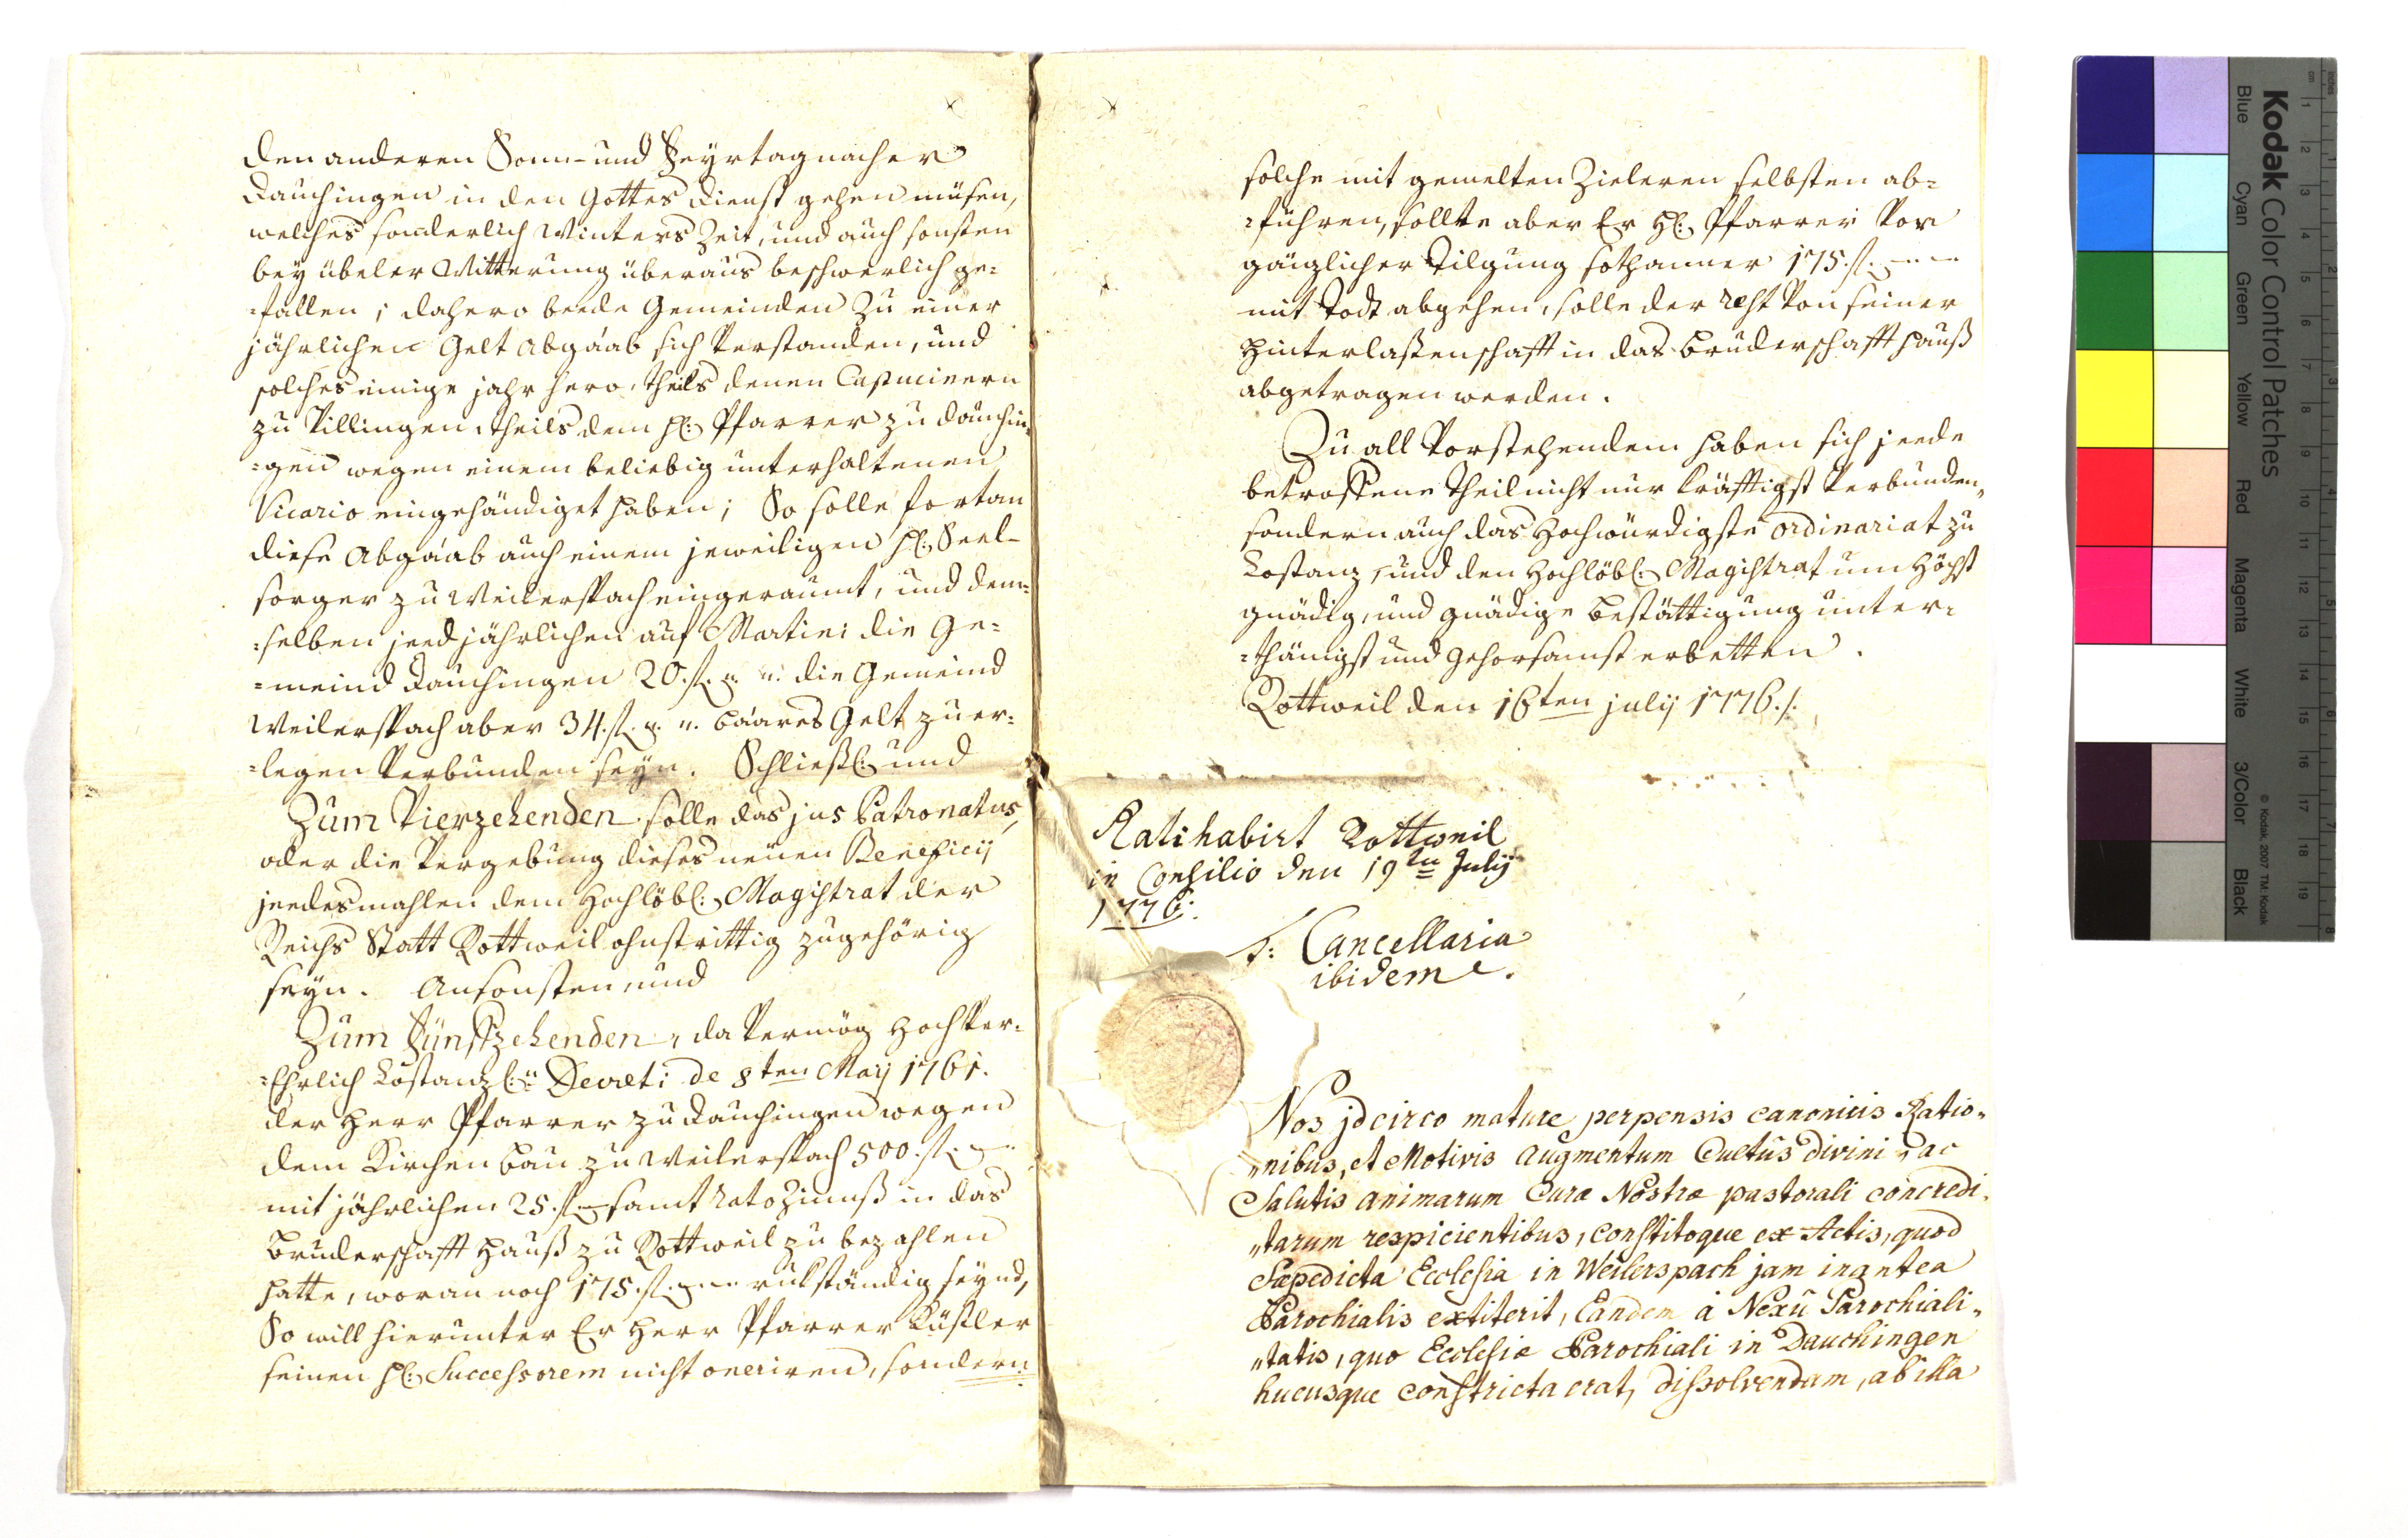 den anderen Sonn- und Feyrtag nacher
Dauchingen in den Gottes dienst gehen müsen,
welches sonderlich Winters Zeit, und auch sonsten
bey übeler Witterung überaus beschwerlich ge=
=fallen; dahero beede Gemeinden zu einer
jährlichen Gelt Abgaab sich verstanden, und
solches einige jahr hero, theils denen Capucinern
zu Villingen, theils dem H: Pfarrer zu Dauchin=
=gen wegen einem beliebig unterhaltenen
Vicario eingehändiget haben; So solle fortan
diese Abgaab auch einem jeweiligen H: Seel-
sorger zu Weilerspach eingeraumt, und dem=
=selben jeedjährlichen auf Martini die Ge=
=meind Dauchingen 20. fl. die Gemeind
Weilerspach aber 34. fl. baares Gelt zu er=
=legen verbunden seyn. Schließl: und
Zum Vierzehenden solle das jus Patronatus,
oder die Vergebung dieses neuen Beneficij
jeedesmahlen dem Hochlöbl: Magistrat der
Reichs Statt Rottweil ohnstrittig zugehörig
seyn. Ansonsten, und
Zum Fünffzehenden, da vermög Hochver=
=Ehrlich Costanzl: Decreti de 8ten Maij 1761.
der Herr Pfarrer zu Dauchingen wegen
dem Kirchen bau zu Weilerspach 500. fl.
mit jährlichen 25. fl. samt rato Zinnß in das
Bruderschafft Hauß zu Rottweil zu bezahlen
hatte, woran noch 175. fl. rukständig seynd,
So will hierunter Er Herr Pfarrer
seinen H: Successorem nicht oneriren, sondern
solche mit gemelten Zieleren selbsten ab=
=führen, sollte aber Er H: Pfarrer vor
gänzlicher Tilgung sothanner 175. fl.
mit Todt abgehen, solle der rest von seiner
Hinterlaßenschafft in das Bruderschafft Hauß
abgetragen werden.
Zu all Vorstehendem haben sich jeede
betroffene Theil nicht nur kräfftigst verbunden,
sondern auch das Hochwürdigste Ordinariat zu
Costanz, und den Hochlöbl: Magistrat um Höchst
gnädig, und gnädige Bestättigung unter=
=thänigst und gehorsamst erbetten.
Rottweil den 16ten julij 1776.
Ratihabirt Rottweil
in Consilio den 19ten Julij
1776.
Cancellaria
ibidem.
Nos jdcirco mature perpensis canonicis Ratio„
„nibus, et Motivis Augmentum Cultûs Divini, ac
Salutis animarum Curæ Nostræ pastorali concredi„
„tarum respicientibus, constitoque ex Actis, quod
Sæpedicta Ecclesia in Weilerspach jam inantea
Parochialis extiterit, Eandem à Nexû Parochiali„
„tatis, quo Ecclesiæ Parochiali in Dauchingen
hucusque constricta erat, dissolvendam, ab illa
Kodak Color Control Patches
Blue Cyan Green Yellow Red Magenta White 3/Color Black
© Kodak, 2007 TM: Kodak
cm 1 2 3 4 5 6 7 8 9 10 11 12 13 14 15 16 17 18 19
inches 1 2 3 4 5 6 7 8